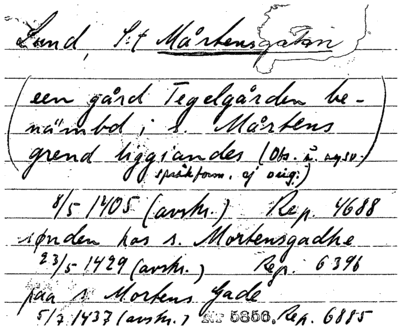 Lund, S:t Mårtensgatan
(een gård Tegelgården be-
nämbd i s. Mårtens
grend liggiandes (Obs. i nysv.
språkform, ej orig.)
8/5 1405 (avskr.) Rep. 4688
sønden hos s. Mortensgadhe
23/5 1429 (avskr.) Rep. 6396
paa s. Mortens Gade
5/7 1437 (avskr.) 5856, Rep. 6885